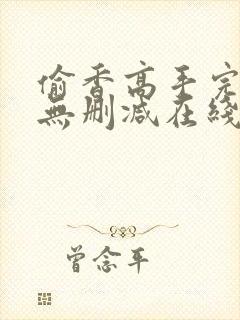 偷香高手完
無刪減在綫
曾念平